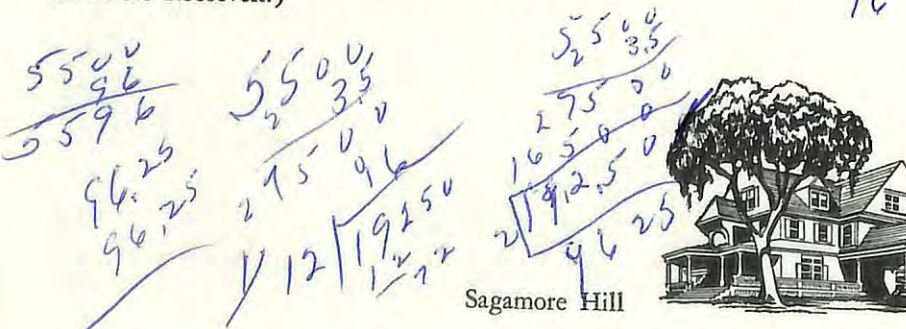 16
5500
96
5596
96.25
96.25
5500
35
27500
96
12 19250
12
72
5500
35
27500
16500
2 192.500
9625
Sagamore Hill